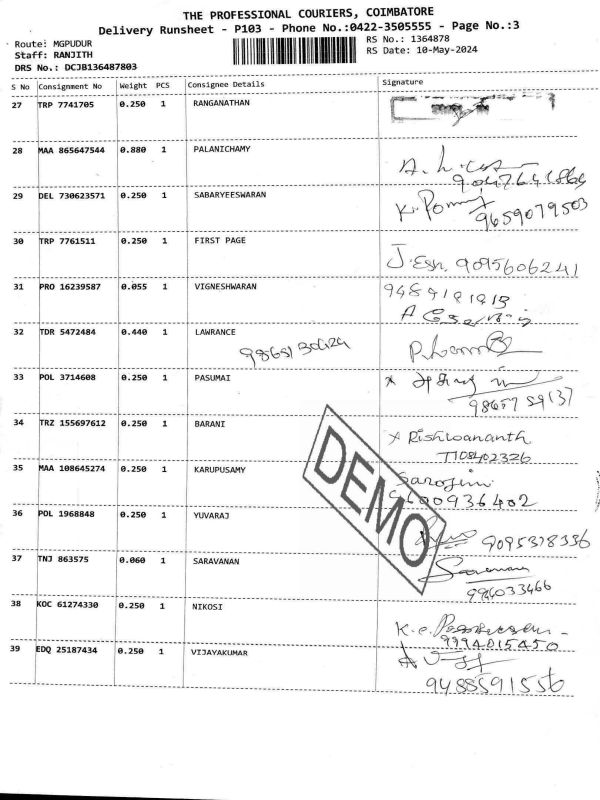 THE PROFESSIONAL COURIERS, COIMBATORE
Delivery Runsheet - P103 - Phone No.:0422-3505555 - Page No.:3
Route: MGPUDUR
RS No.: 1364878
Staff: RANJITH
RS Date: 10-May-2024
DRS No.: DCJB136487803
S No Consignment No Weight PCS Consignee Details Signature
27 TRP 7741705 0.250 1 RANGANATHAN
28 MAA 865647544 0.880 1 PALANICHAMY
29 DEL 730623571 0.250 1 SABARYEESWARAN
9659079503
30 TRP 7761511 0.250 1 FIRST PAGE
9095606241
31 PRO 16239587 0.055 1 VIGNESHWARAN
32 TDR 5472484 0.440 1 LAWRANCE
33 POL 3714608 0.250 1 PASUMAI
34 TRZ 155697612 0.250 1 BARANI
x Rishwananth
7708402326
35 MAA 108645274 0.250 1 KARUPUSAMY
Sarojini
9600936402
36 POL 1968848 0.250 1 YUVARAJ
9095378336
37 TNJ 863575 0.060 1 SARAVANAN
Saravanan
38 KOC 61274330 0.250 1 NIKOSI
9994015450
39 EDQ 25187434 0.250 1 VIJAYAKUMAR
9488591556
DEMO